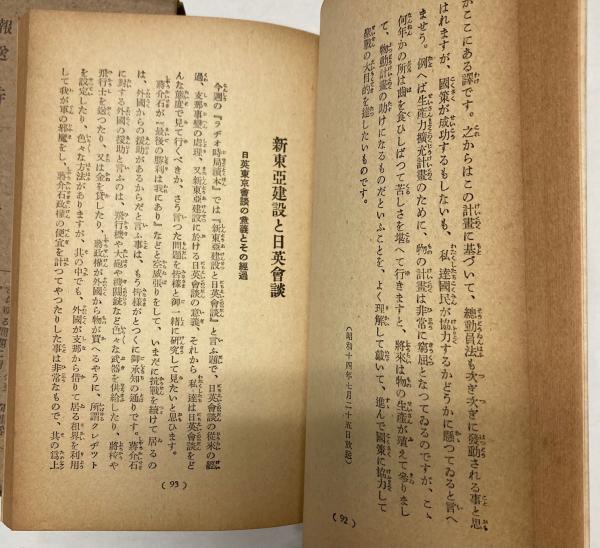 がここにある譯です。之からはこの計畫に基づいて、總動員法も次ぎ次ぎに發動される事と思
はれますが、國策が成功するもしないも、私達國民が協力するかどうかに懸つてゐると言へ
ませう。例へば生產力擴充計畫のために、物の計畫は非常に窮屈となつてゐるのですが、こゝ
何年かの所は齒を食ひしばつて苦しさを堪へて行きますと、將來は物の生產が殖えて參りまし
て、物動計畫の助けになるものだといふことを、よく理解して戴いて、進んで國策に協力して
聖戰の大目的を達したいものです。
（昭和十四年七月二十五日放送）
（92）
新東亞建設と日英會談
日英東京會談の意義とその經過
今週の『ラヂオ時局讀本』では『新東亞建設と日英會談』と言ふ題で、日英會談の從來の經
過、支那事變の處理、又新東亞建設に於ける日英會談の意義、それから私達は日英會談をど
んな態度で見て行くべきか、さう言つた問題を皆樣と御一緖に研究して見たいと思ひます。
蔣介石が『最後の勝利は我にあり』などと空威張りをして、いまだに抗戰を續けて居るの
は、外國からの援助があるからだと言ふ事は、もう皆樣がとつくに御承知の通りです。蔣介石
に對する外國の援助と言ふのは、飛行機や大砲や機關銃など色々な武器を供給したり、將校や
飛行士を送つたり、又は金を貸したり、蔣政權が外國から物が買へるやうに、所謂クレヂツト
を設定したり、色々な方法がありますが、其の中でも、外國が支那から借りて居る租界を利用
して我が軍の邪魔をし、蔣介石政權の便宜を計つてやつたりした事は非常なもので、其の爲上
（93）